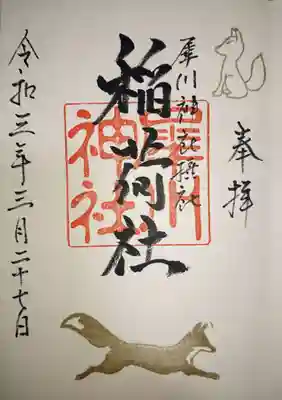 奉拝
犀川神社摂社
稲荷社
犀川神社
令和三年三月二十七日